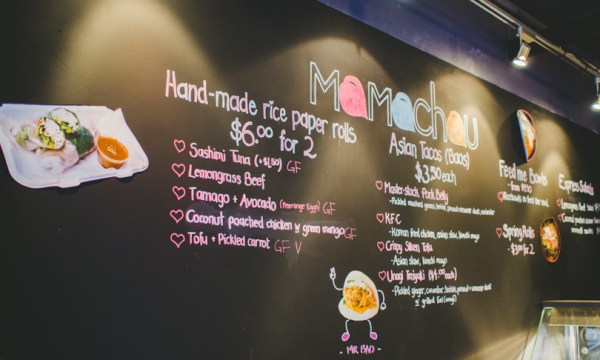 MaMachau
Hand-made rice paper rolls
$6.00 for 2
Sashimi Tuna (+$1.50) GF
Lemongrass Beef
Tamago + Avocado (Freerange Eggs) GF
Coconut poached chicken w green mango GF
Tofu + Pickled carrot GF V
Asian Tacos (Baos)
$3.50 each
Master-stock Pork Belly
KFC
- Korean fried chicken, asian slaw, kimchi mayo
Crispy Silken Tofu
- Asian slaw, kimchi mayo
Unagi Teriyaki ($4.00 each)
- Pickled ginger, cucumber,
w grilled Eel
MR BAO
Feed me Bowls
Spring Rolls
- $3 for 2
Express Salads